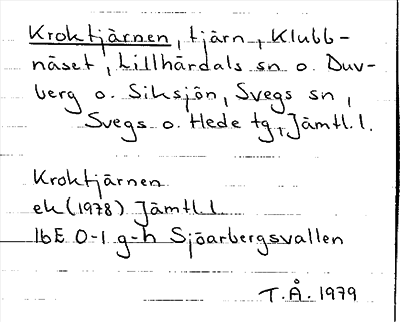 Kroktjärnen, tjärn, Klubb-
näset, Lillhärdals sn o. Duv-
berg o. Siksjön, Svegs sn,
Svegs o. Hede tg, Jämtl. l.
Kroktjärnen
ek (1978) Jämtl l
16E 0-1 g-h Sjöarbergsvallen
T.Å. 1979